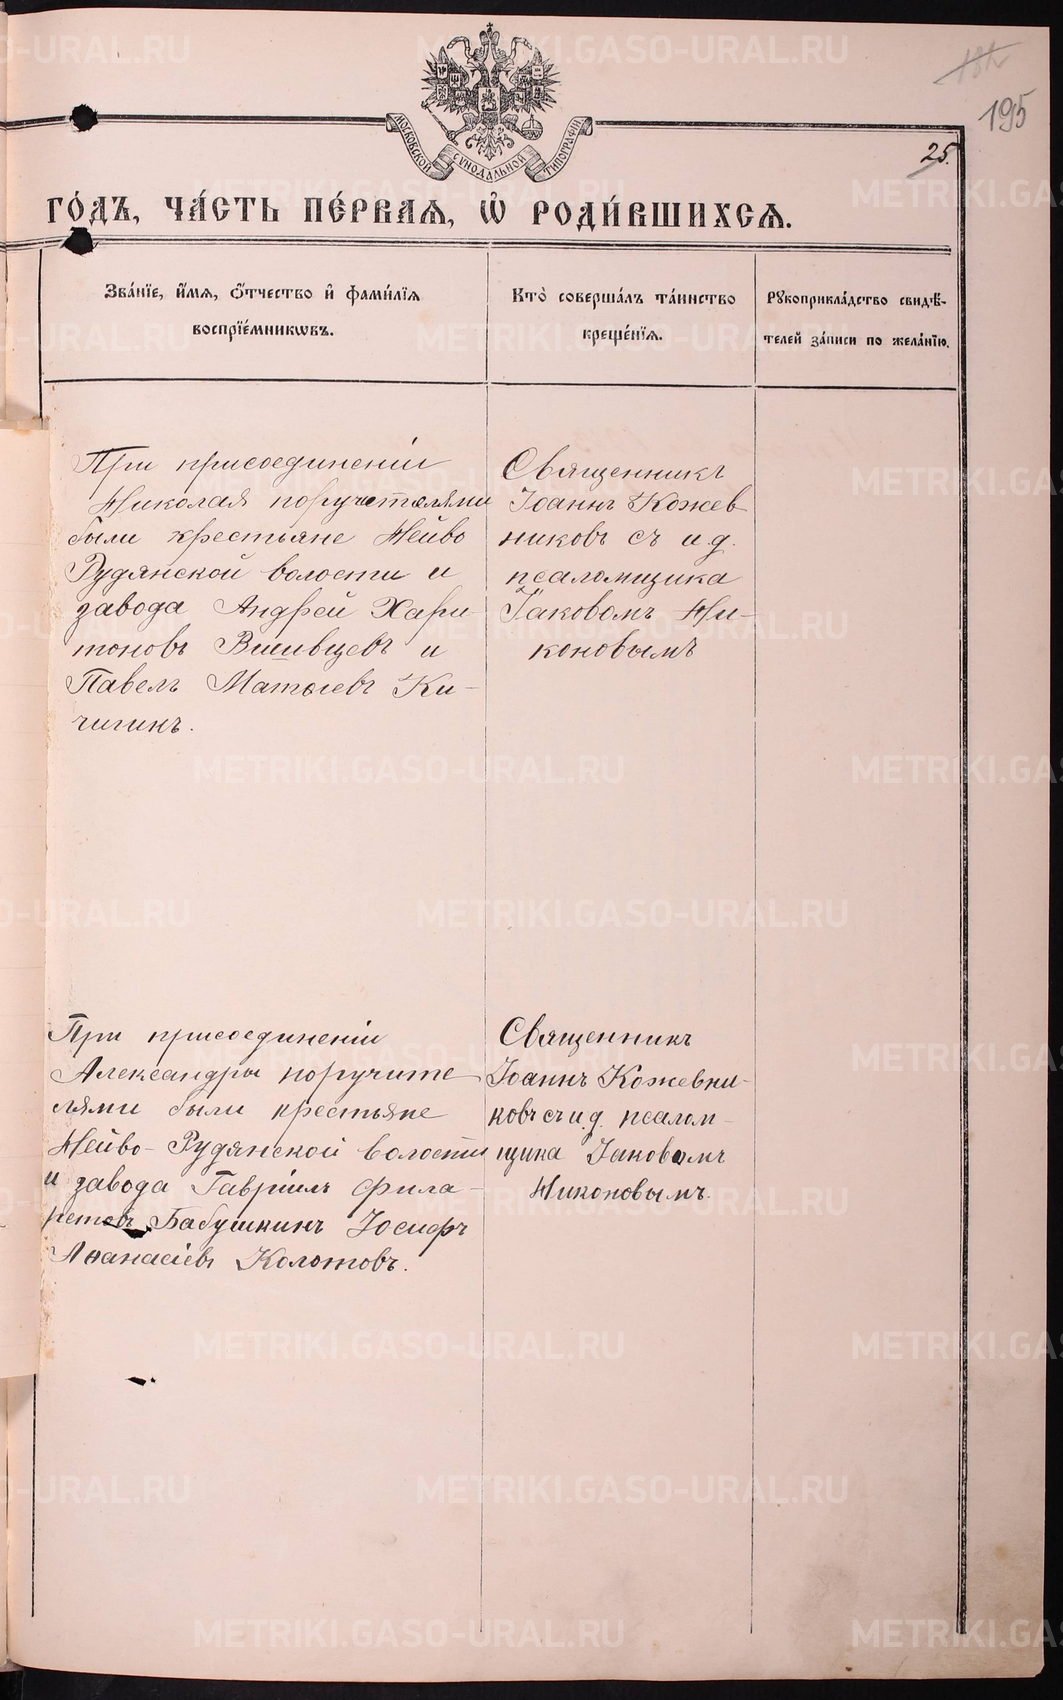 195
25.
МОСКОВСКОЙ СУНОДАЛЬНОЙ ТИПОГРАФІИ
ГО́ДЪ, ЧА́СТЬ ПЕ́РВАѦ, Ѡ҆ РОДИ́ВШИХСѦ.
Зва́нїе, и҆́мѧ, ѻ҆́тчество и҆ фамилїѧ
воспрїе́мникѡвъ.
Кто̀ соверша́лъ та́инство
креще́нїѧ.
Рꙋкоприкла́дство свидѣ́-
телей за́писи по жела́нїю.
При присоединеніи
Николая поручителями
были крестьяне Нейво
Рудянской волости и
завода Андрей Хари
тоновъ Вшивцевъ и
Павелъ Матѳіевъ Ки-
чигинъ.
Священникъ
Іоаннъ Кожев
никовъ съ и.д.
псаломщика
Іаковомъ Ни-
коновымъ
При присоединеніи
Александры поручите
лями были крестьяне
Нейво-Рудянской волости
и завода Гавріилъ Фила-
ретовъ Бабушкинъ Іосифъ
Аѳанасіевъ Колотовъ.
Священникъ
Іоаннъ Кожевни-
ковъ съ и.д. псалом-
щика Іаковомъ
Никоновымъ.
METRIKI.GASO-URAL.RU